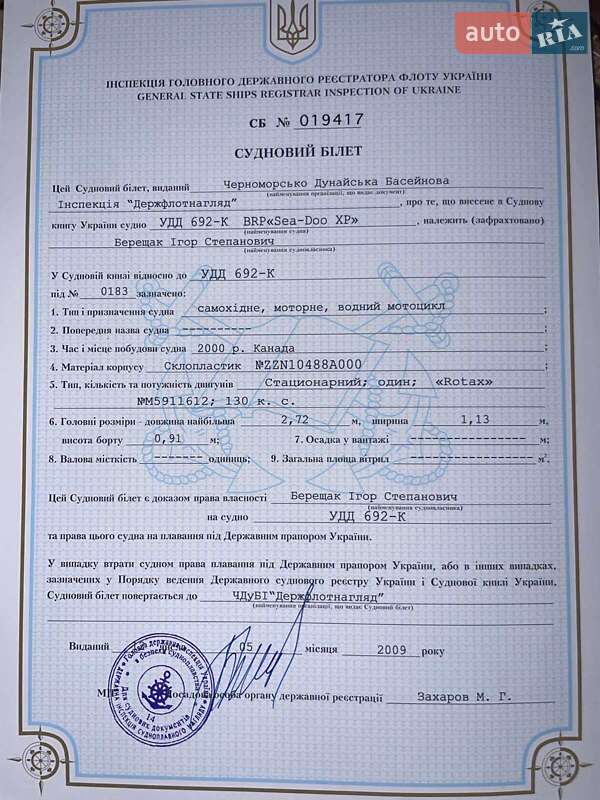 auto RIA.com
ІНСПЕКЦІЯ ГОЛОВНОГО ДЕРЖАВНОГО РЕЄСТРАТОРА ФЛОТУ УКРАЇНИ
GENERAL STATE SHIPS REGISTRAR INSPECTION OF UKRAINE
СБ № 019417
СУДНОВИЙ БІЛЕТ
Цей Судновий білет, виданий Черноморсько Дунайська Басейнова
(найменування організації, що видає документ)
Інспекція "Держфлотнагляд", про те, що внесене в Суднову
книгу України судно УДД 692-К BRP«Sea-Doo XP», належить (зафрахтовано)
(найменування судна)
Берещак Ігор Степанович
(найменування судновласника)
У Судновій книзі відносно до УДД 692-К
під № 0183 зазначено:
1. Тип і призначення судна самохідне, моторне, водний мотоцикл;
2. Попередня назва судна -----------;
3. Час і місце побудови судна 2000 р. Канада;
4. Матеріал корпусу Склопластик №ZZN10488A000;
5. Тип, кількість та потужність двигунів Стационарний; один; «Rotax»
№М5911612; 130 к. с.
6. Головні розміри - довжина найбільша 2,72 м, ширина 1,13 м,
висота борту 0,91 м; 7. Осадка у вантажі ------------------ м;
8. Валова місткість -------- одиниць; 9. Загальна площа вітрил ------------------ м².
Цей Судновий білет є доказом права власності Берещак Ігор Степанович
(найменування судновласника)
на судно УДД 692-К
та права цього судна на плавання під Державним прапором України.
У випадку втрати судном права плавання під Державним прапором України, або в інших випадках,
зазначених у Порядку ведення Державного суднового реєстру України і Суднової книги України,
Судновий білет повертається до ЧДуБІ"Держфлотнагляд"
(найменування організації, що видає Судновий білет)
Виданий 05 місяця 2009 року
Посадова особа органу державної реєстрації Захаров М. Г.
Для суднових документів
14